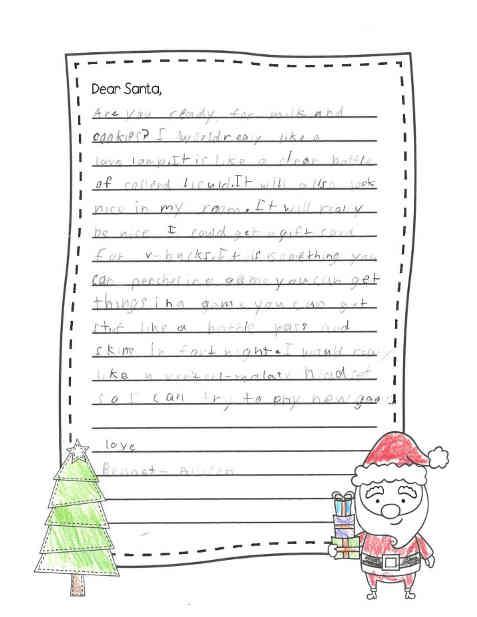 Dear Santa,
Are you ready for milk and
cookies? I would reay like a
lava lamp.It is like a clear bottle
of colored liquid.It will also look
nice in my room.It will really
be nice I could get a gift card
for v-bucks.It is something you
can in a game you can get
things in a game you can get
stuf like a battle pass and
skins in fortnight.I would
like a headset
so I can try to play new games
love
Bennet